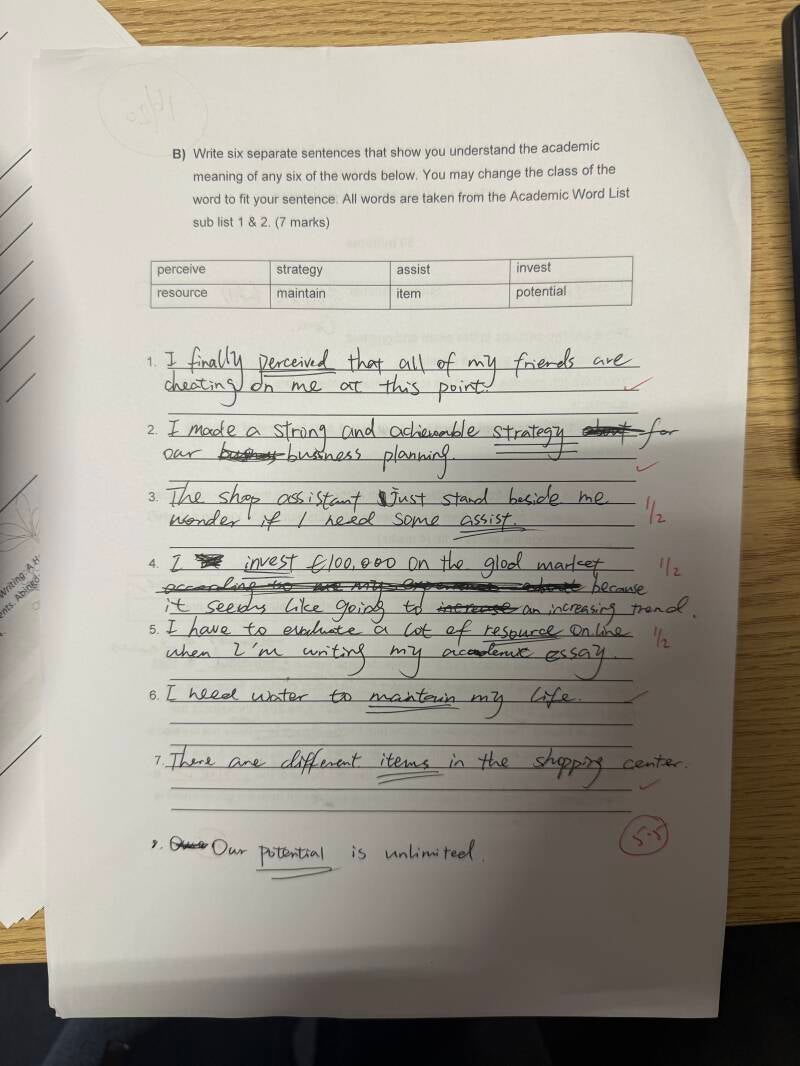 16/20
B) Write six separate sentences that show you understand the academic
meaning of any six of the words below. You may change the class of the
word to fit your sentence. All words are taken from the Academic Word List
sub list 1 & 2. (7 marks)
perceive strategy assist invest
resource maintain item potential
1. I finally perceived that all of my friends are
cheating on me at this point.
2. I made a strong and achievable strategy for
our business planning.
3. The shop assistant Just stand beside me
wonder if I need some assist. 1/2
4. I invest £100,000 on the glod market 1/2
because
it seems like going to an increasing trend.
5. I have to evaluate a lot of resource online
when I'm writing my academic essay. 1/2
6. I need water to maintain my life.
7. There are different items in the shopping center.
Our potential is unlimited.
5.5
Writing: A H